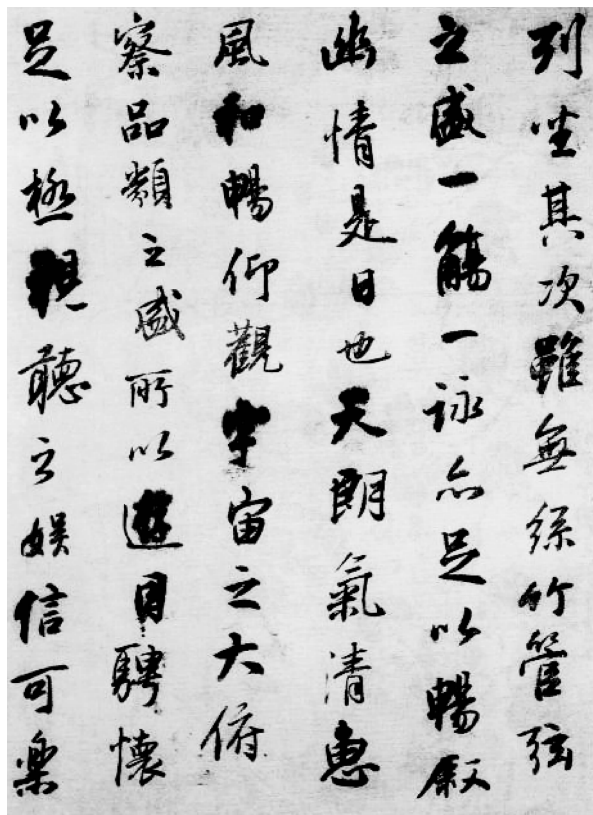 列坐其次雖無絲竹管弦
之盛一觴一詠亦足以暢叙
幽情是日也天朗氣清惠
風和暢仰觀宇宙之大俯
察品類之盛所以遊目騁懷
足以極視聽之娛信可樂